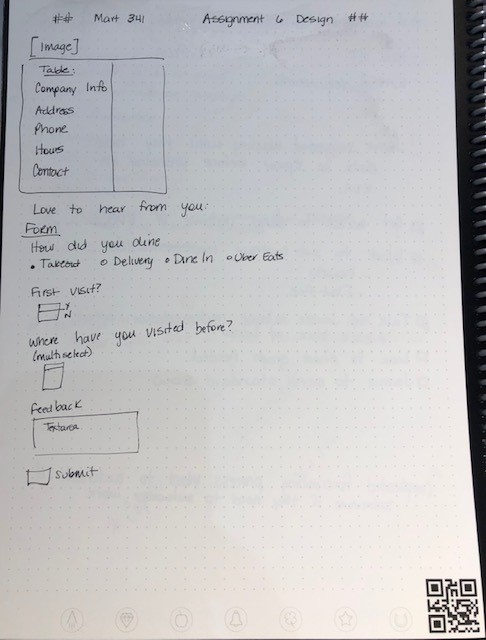 ## Mart 341 Assignment 6 Design ##
[Image]
Table:
Company Info
Address
Phone
Hours
Contact
Love to hear from you:
Form
How did you dine
• Takeout o Delivery o Dine In o Uber Eats
First visit?
Y
N
Where have you visited before?
(multiselect)
Feedback
Textarea
Submit